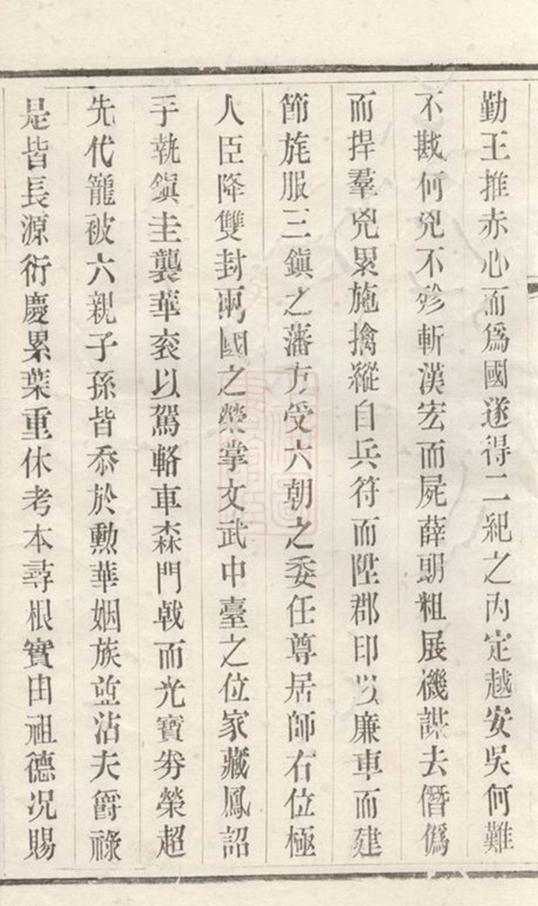 勤王推赤心而爲國遂得二紀之內定越安吳何難
不戡何兇不殄斬漢宏而屍薛朗粗展機謀去僭僞
而捍羣兇累施擒縱自兵符而陞郡印以廉車而建
節旄服三鎭之藩方受六朝之委任尊居師右位極
人臣降雙封兩國之榮掌文武中臺之位家藏鳳詔
手執鎭圭襲華袞以駕輅車森門戟而光寶劵榮超
先代寵被六親子孫皆忝於勲華姻族並沾夫爵祿
是皆長源衍慶累葉重休考本尋根實由祖德况賜